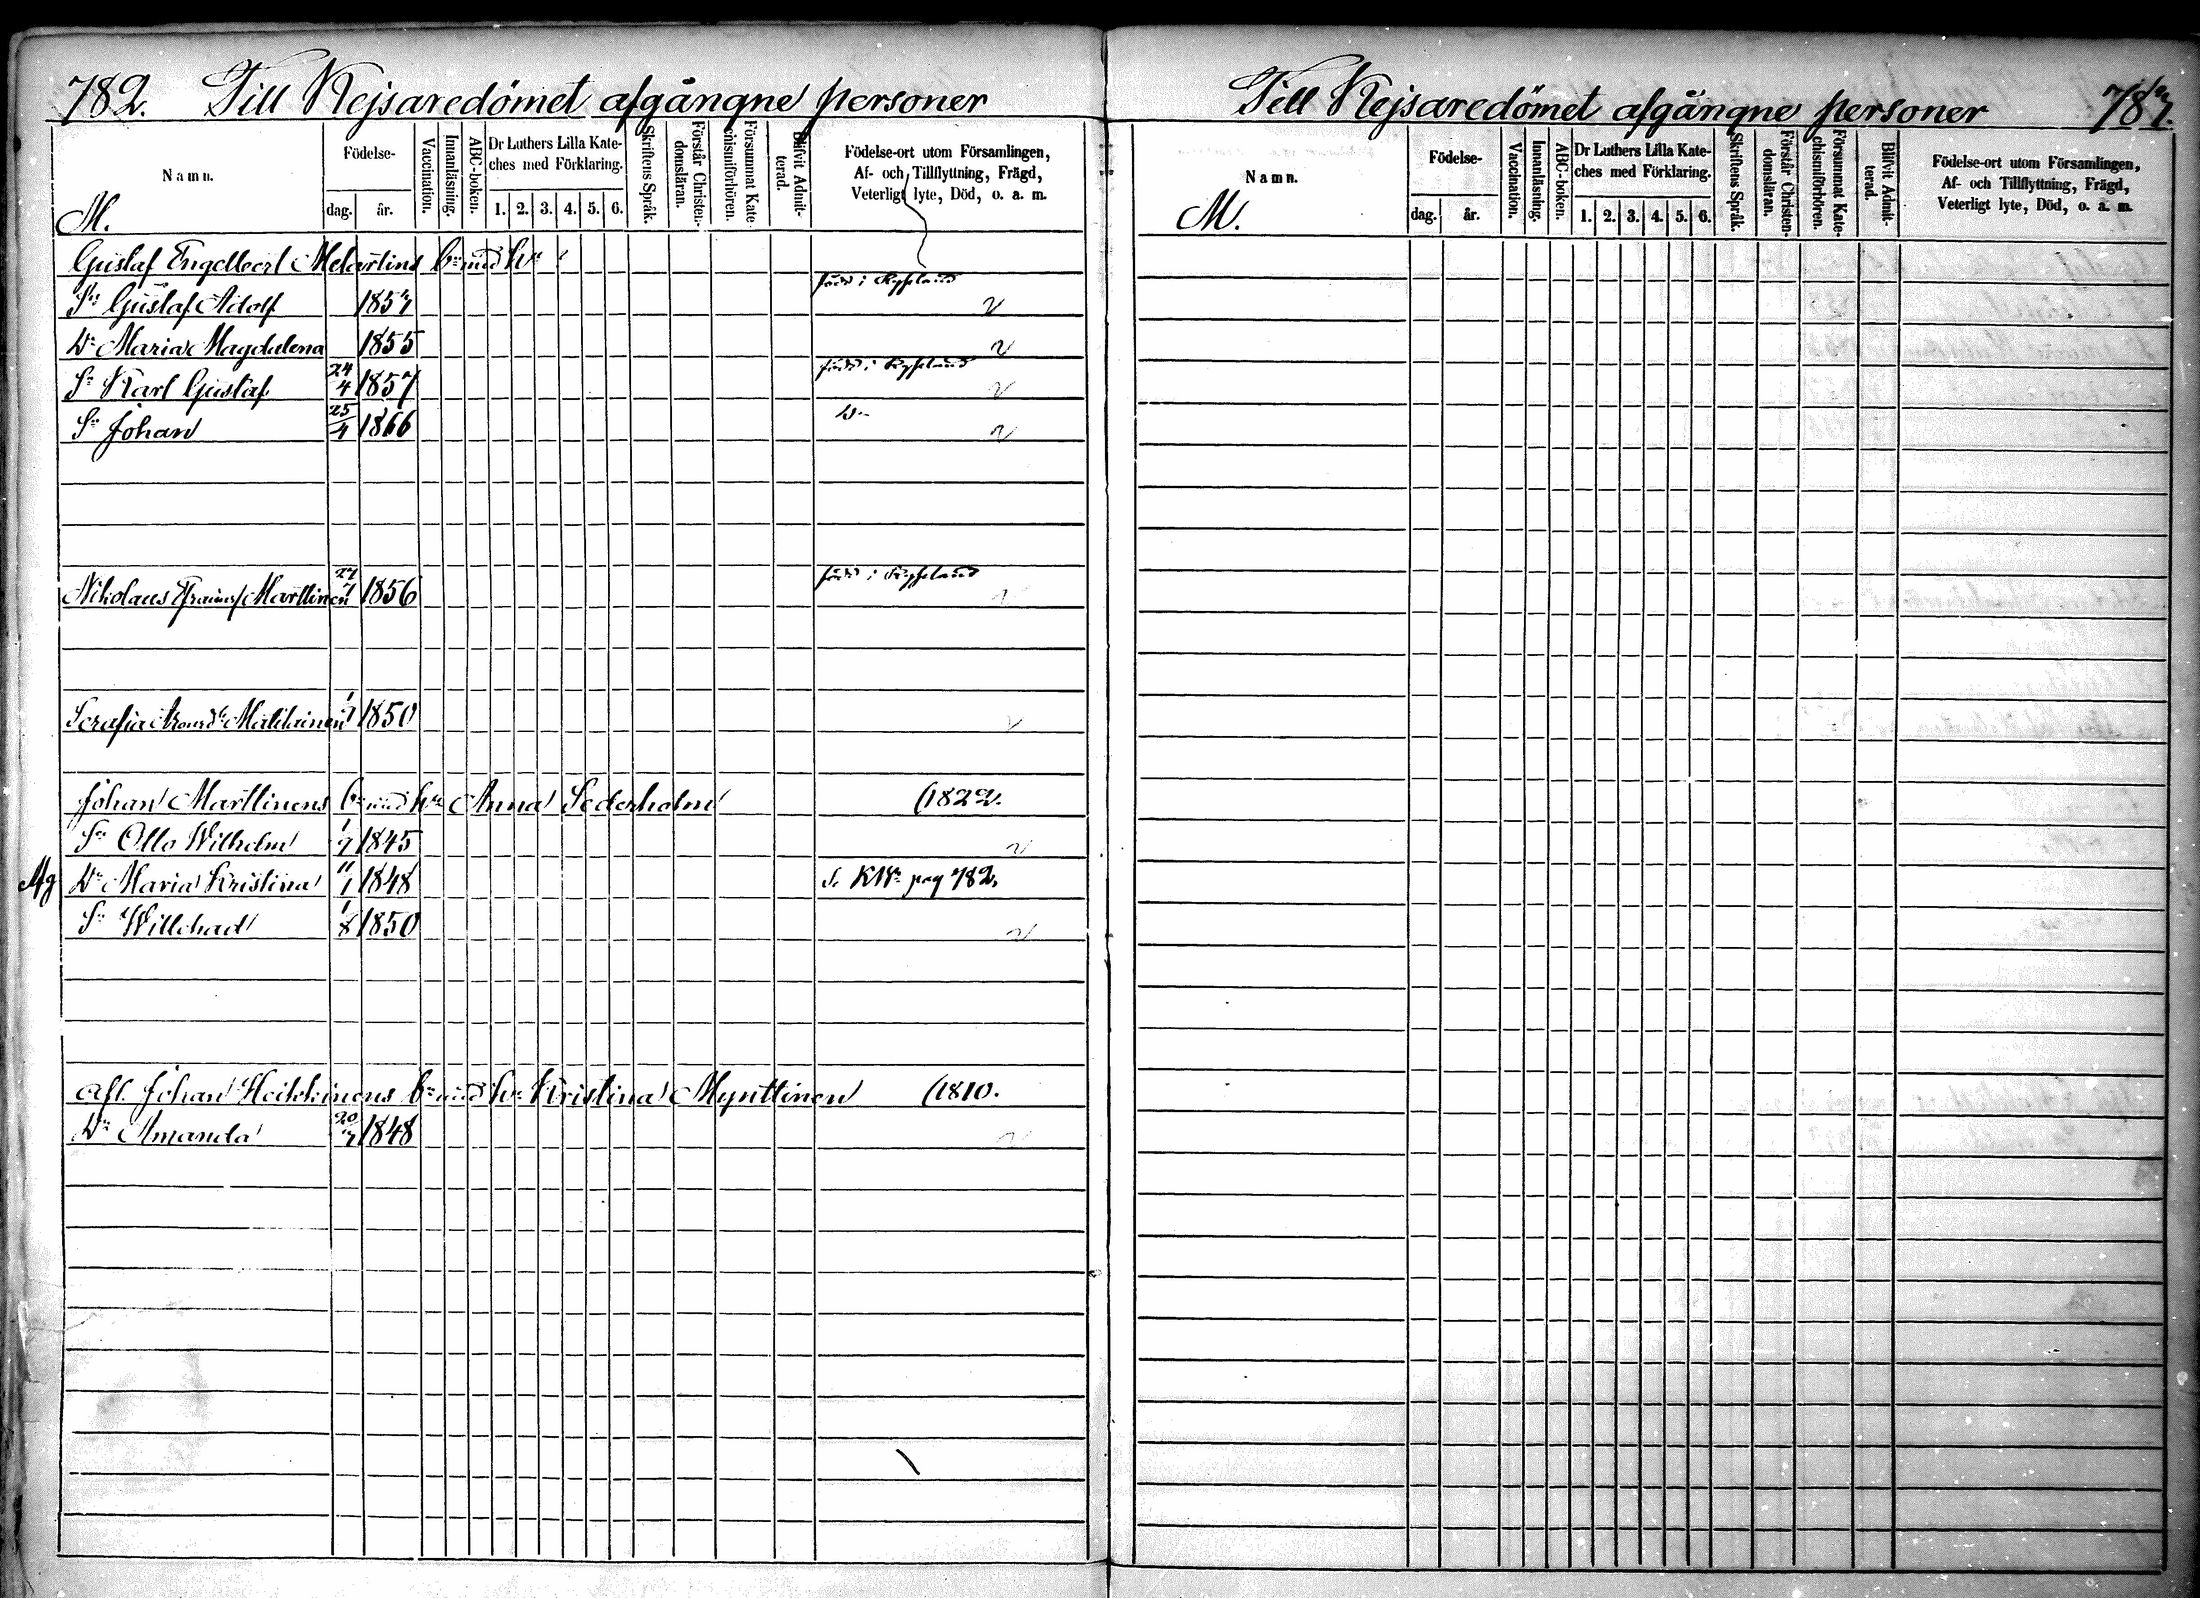 782. Till Kejsaredömet afgångne personer
Namn.
M.
Födelse-
dag.
år.
Vaccination.
Innanläsning.
ABC-boken.
Dr Luthers Lilla Kate-
ches med Förklaring.
1. 2. 3. 4. 5. 6.
Skriftens Språk.
Förstår Christen-
domsläran.
Försummat Kate-
chismiförhören.
Blifvit Admit-
terad.
Födelse-ort utom Församlingen,
Af- och Tillflyttning, Frägd,
Veterligt lyte, Död, o. a. m.
Gustaf Engelbert Melartins
född i Ryssland
Sn Gustaf Adolf 1857
Dr Maria Magdalena 1855
född i Ryssland
Sn Karl Gustaf 24/4 1857
Sn Johan 25/4 1866 D-
född i Ryssland
Nikolaus Marttinen 27/7 1856
Serafia 1850
Johan Marttinens bn med hu Anna Sederholm (1822.
Sn Otto Wilhelm 1/7 1845
Mg Dr Maria Kristina 11/1 1848 S. KB pag 782.
Sn Willehad 1/8 1850
Afl. Johan Heikkinens bn med hu Kristina Mynttinen (1810.
Dr Amanda 20/7 1848
Till Kejsaredömet afgångne personer
Namn.
M.
Födelse-
dag.
år.
Vaccination.
Innanläsning.
ABC-boken.
Dr Luthers Lilla Kate-
ches med Förklaring.
1. 2. 3. 4. 5. 6.
Skriftens Språk.
Förstår Christen-
domsläran.
Försummat Kate-
chismiförhören.
Blifvit Admit-
terad.
Födelse-ort utom Församlingen,
Af- och Tillflyttning, Frägd,
Veterligt lyte, Död, o. a. m.